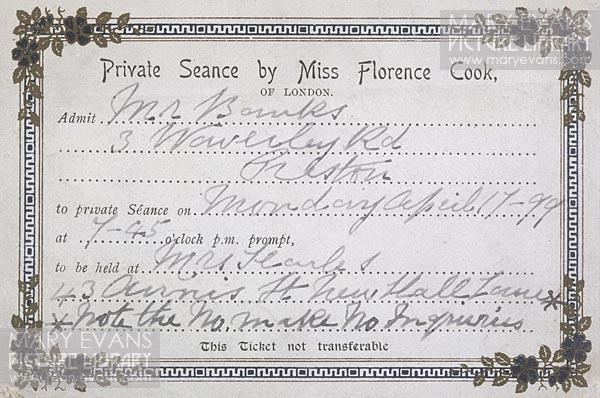 Private Seance by Miss Florence Cook,
OF LONDON.
Admit Mr Banks
3 Waverley Rd
Preston
to private Séance on Monday April 17-99
at 7-45 o'clock p.m. prompt,
to be held at Mrs Searles
43 St New Hall Lane *
* Note the No. make No Inquiries
This Ticket not transferable
MARY EVANS
PICTURE LIBRARY
www.maryevans.com
MARY EVANS
PICTURE LIBRARY
www.maryevans.com